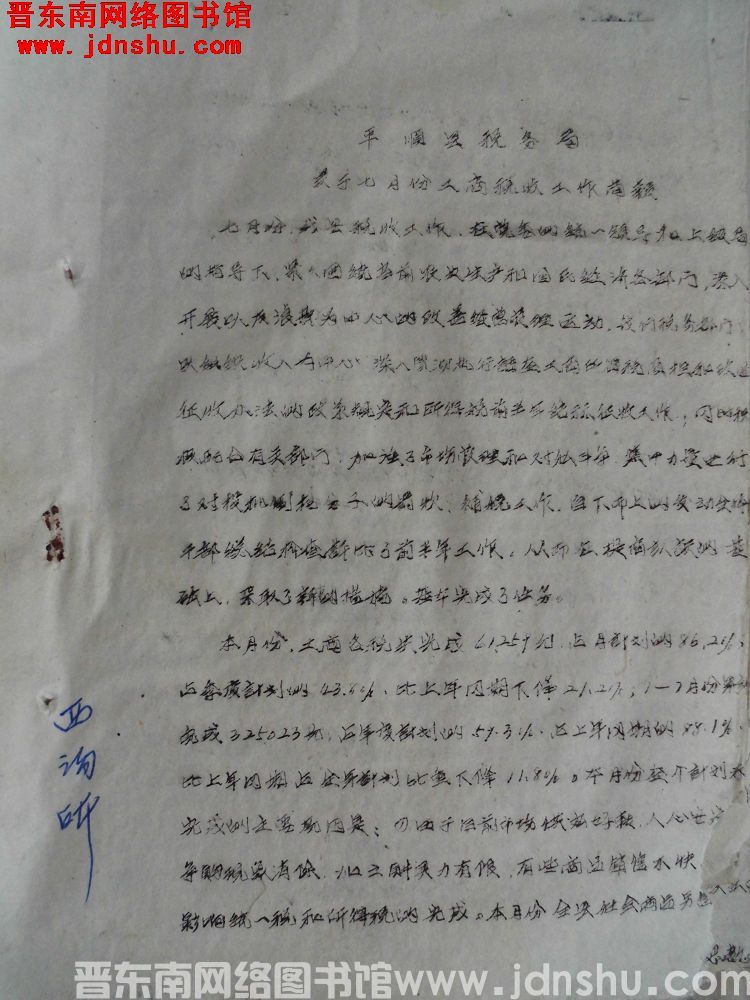 晋东南网络图书馆
www.jdnshu.com
平顺县税务局
关于七月份工商税收工作简报
七月份,我县税收工作,在党委的统一领导和上级局
的指导下,紧紧围绕当前农业生产和国民经济各部门,深入
开展以反浪费为中心的改善经营管理运动,我们税务部门
以组织收入为中心 深入贯彻执行
征收办法的政策规定和所得税前半年结征收工作,同时积
极配合有关部门,加强了市场管理和 斗争 集中力量进行
了对投机倒把分子的罚款、补税工作,自下而上的发动全体
干部总结检查 了前半年工作,从而在提高认识的基
础上,采取了新的措施。
本月份,工商各税共完成61,259元,占月计划的86.2%,
占季度计划的23.8%,比上年同期下降21.2%,1—7月份累计
完成325023元,占年度计划的59.3%,占上年同期的88.1%,
比上年同期占全年计划比重下降11.8%。本月份整个计划未
完成的主要原因是:(1)由于目前市场供应好转,人心
争购现象消除,加之购买力有限,有些商品销售不快
影响统一税和所得税的完成。本月份全县社会商品
西沟所
晋东南网络图书馆www.jdnshu.com